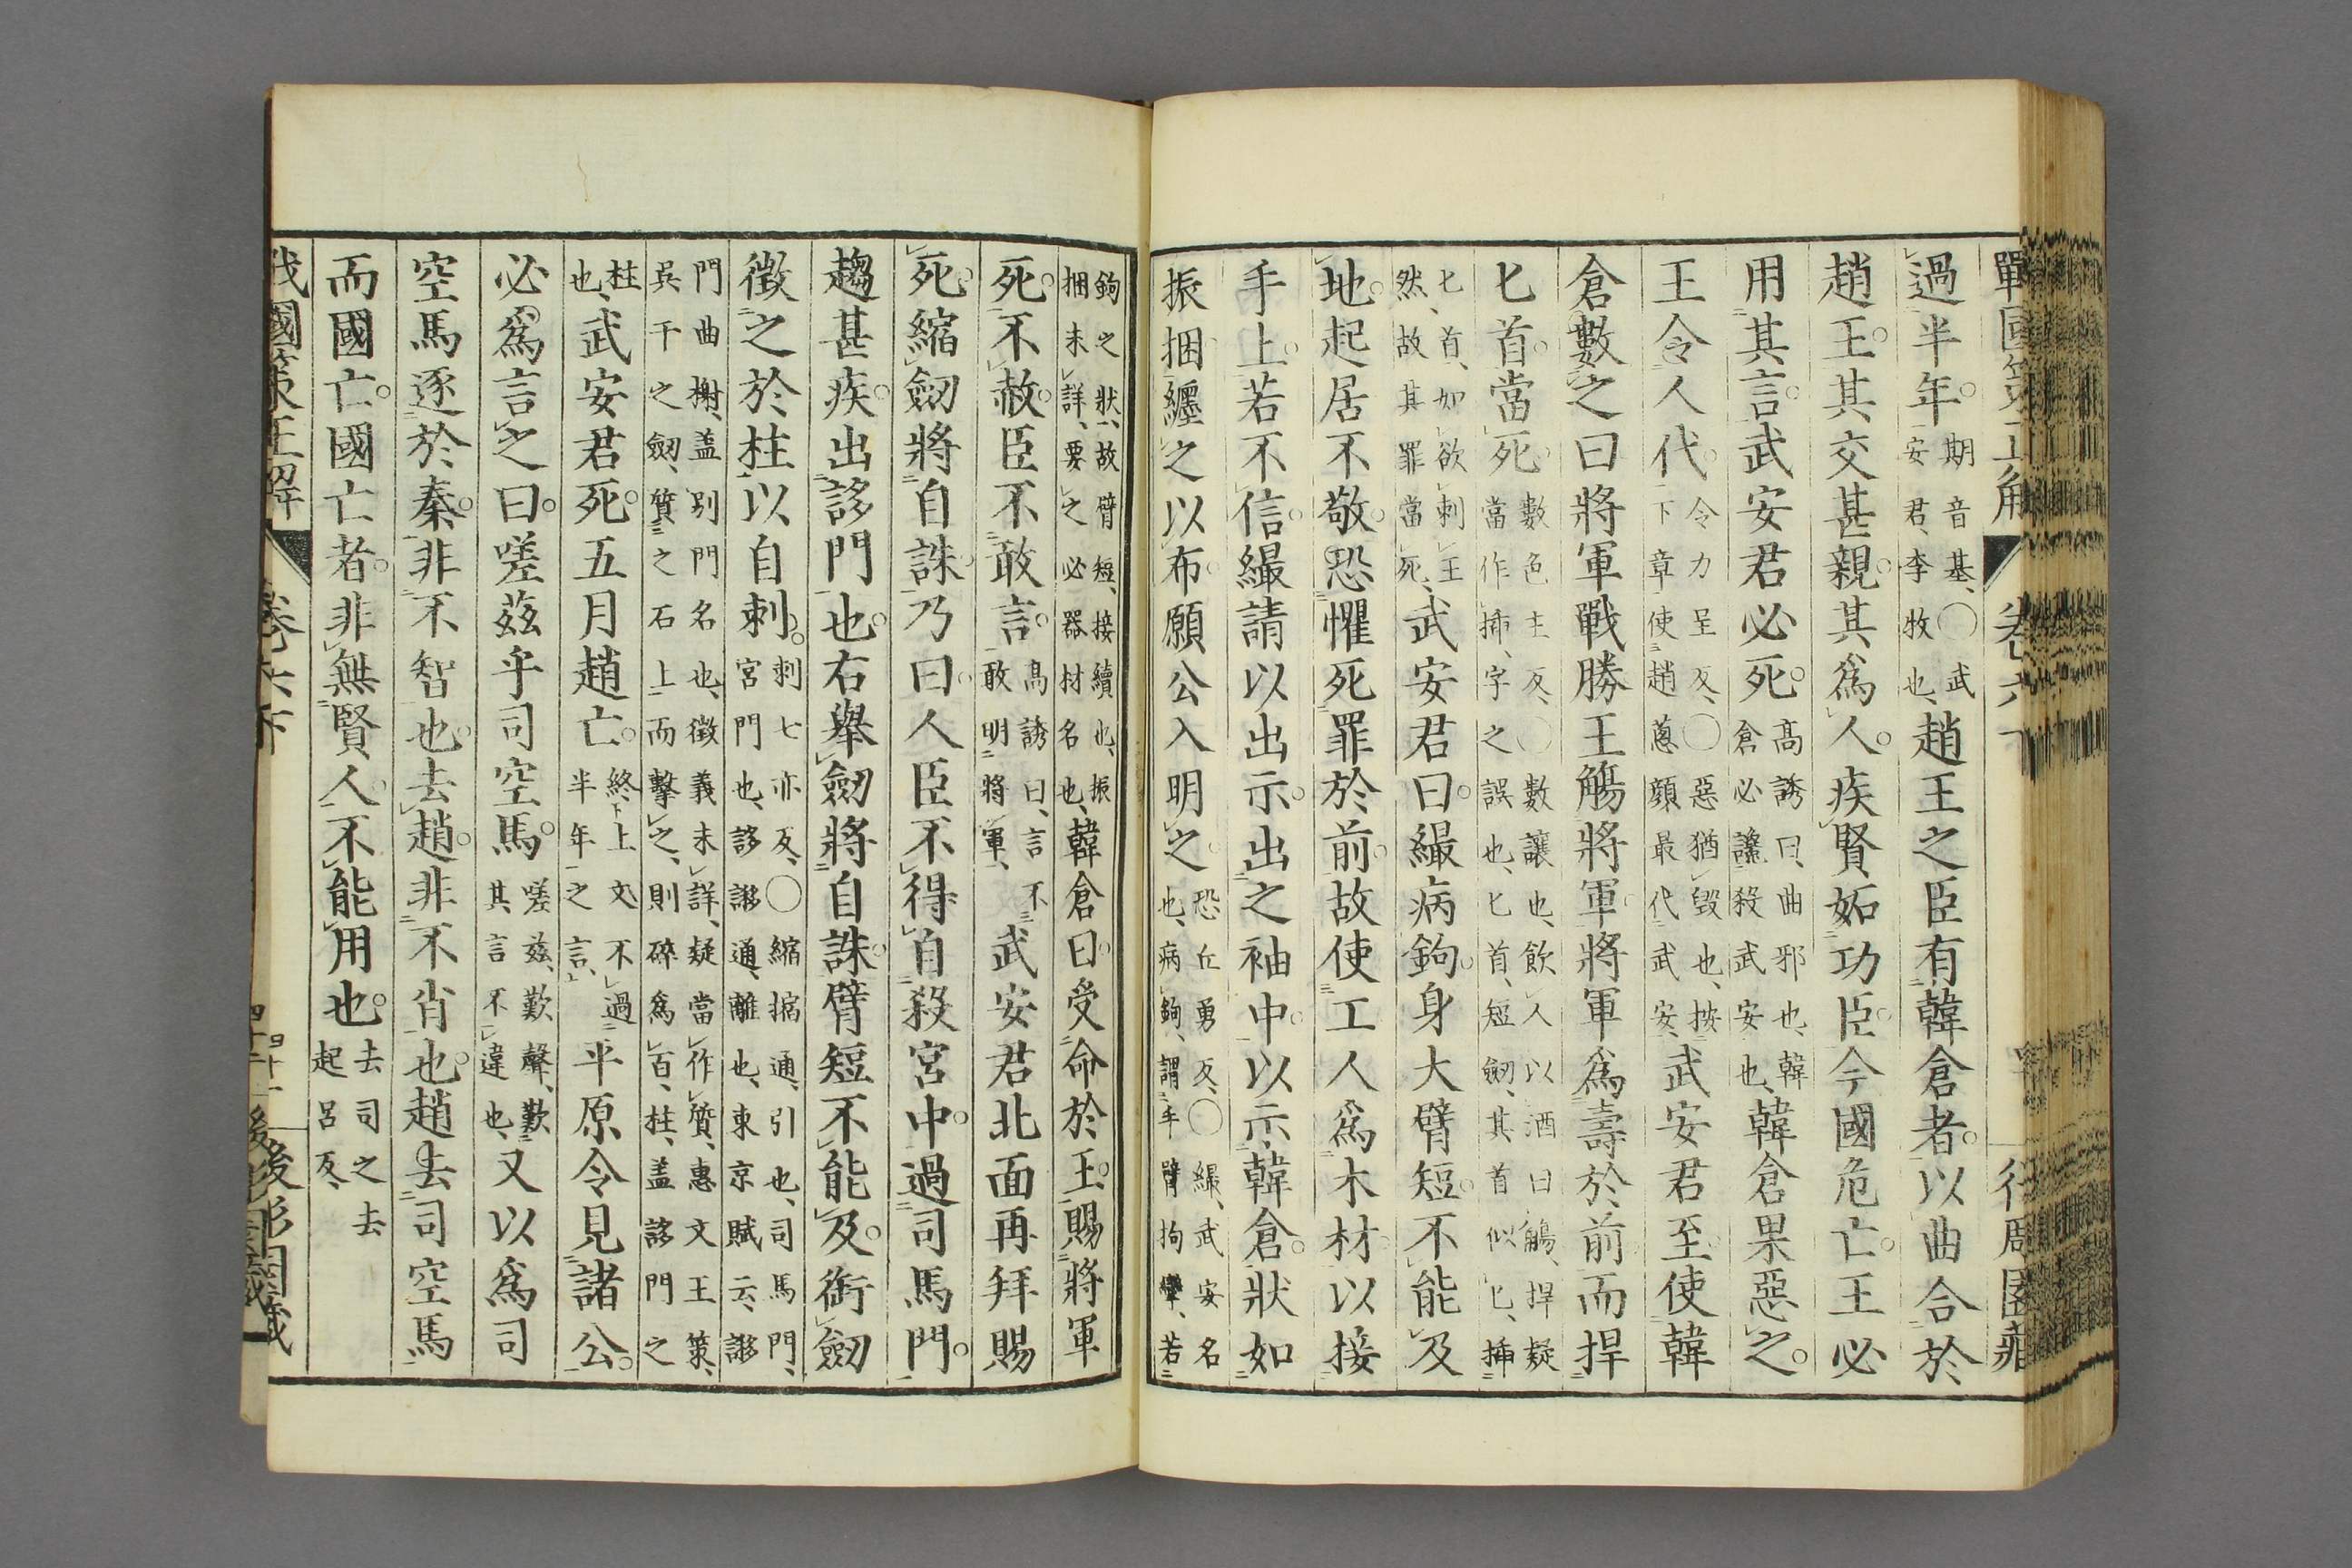 戰國策正解　卷六下
過半年。期音基、〇武安君、李牧也、趙王之臣有韓倉者。以曲合於
趙王。其交甚親。其爲人。疾賢妬功臣。今國危亡。王必
用其言。武安君必死。高誘曰、曲邪也、韓倉必讒殺武安也、韓倉果惡之。
王令人代。令力呈反、〇惡猶毀也、按下章使趙蔥顔最代武安、武安君至。使韓
倉數之曰將軍戰勝王觴將軍。將軍爲壽於前而捍
匕首。當死。數色主反、〇數讓也、飲人以酒曰觴、捍疑當作揷、字之誤也、匕首、短劒、其首似匕、揷
匕首、如欲刺王然、故其罪當死、武安君曰。繓病鉤。身大臂短。不能及
地。起居不敬。恐懼死罪於前。故使工人爲木材。以接
手。上若不信。繓請以出示。出之袖中。以示韓倉。狀如
振捆纏之以布。願公入明之。恐丘勇反、〇繓、武安名也、病鉤、謂手臂拘攣、若
鉤之狀、故臂短、接續也、振捆未詳、要之必器材名也、韓倉曰。受命於王。賜將軍
死。不赦。臣不敢言。高誘曰、言不敢明將軍、武安君北面再拜賜
死。縮劒將自誅。乃曰。人臣不得自殺宮中。過司馬門。
趨甚疾。出誃門也。右舉劒將自誅。臂短不能及。銜劒
徵之於柱以自刺。刺七亦反、〇縮搐通、引也、司馬門、宮門也、誃謻通、離也、東京賦云、謻
門曲榭、盖別門名也、徵義未詳、疑當作質、惠文王策、吳干之劒、質之石上而擊之、則碎爲百、柱、盖誃門之
柱也、武安君死。五月趙亡。終上文不過半年之言、平原令見諸公。
必爲言之曰。嗟玆乎司空馬。嗟玆、歎聲、歎其言不違也、又以爲司
空馬逐於秦。非不智也。去趙。非不肖也。趙去司空馬
而國亡。國亡者。非無賢人。不能用也。去司之去起呂反、
戰國策正解　卷六下　四十一　後彫閣藏